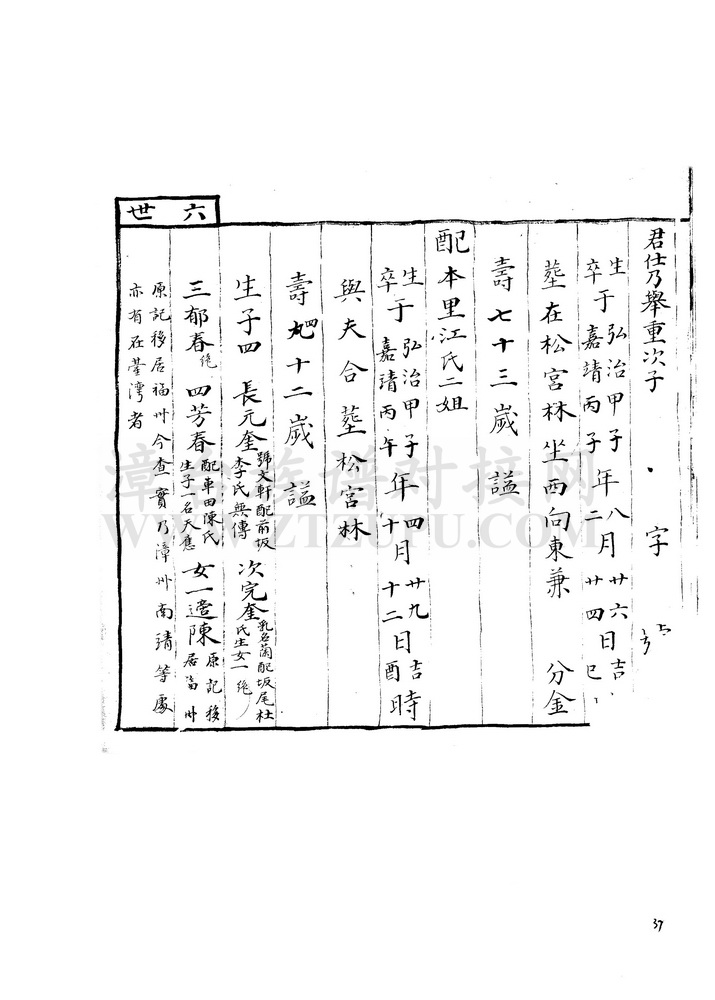 君仕乃舉重次子 字
生于弘治甲子年八月廿六日吉
卒于嘉靖丙子二廿四巳
塟在松宮林坐西向東兼 分金
壽七十三歲 謚
配本里江氏二姐
生于弘治甲子年四月廿九日吉時
卒于嘉靖丙午年十月十二日酉時
與夫合塟松宮林
壽四十二歲 謚
生子四 長元奎 號文軒配前坂李氏無傳 次完奎 乳名蘭配坂尾杜氏生女一絶
三郁春 絶 四芳春 配車田陳氏生子一名天應 女一適陳 原記移居福州
原記移居福州今查實乃漳州南靖等處
亦有在臺灣者
六世
漳州族谱对接网
WWW.ZTZUPU.COM
37